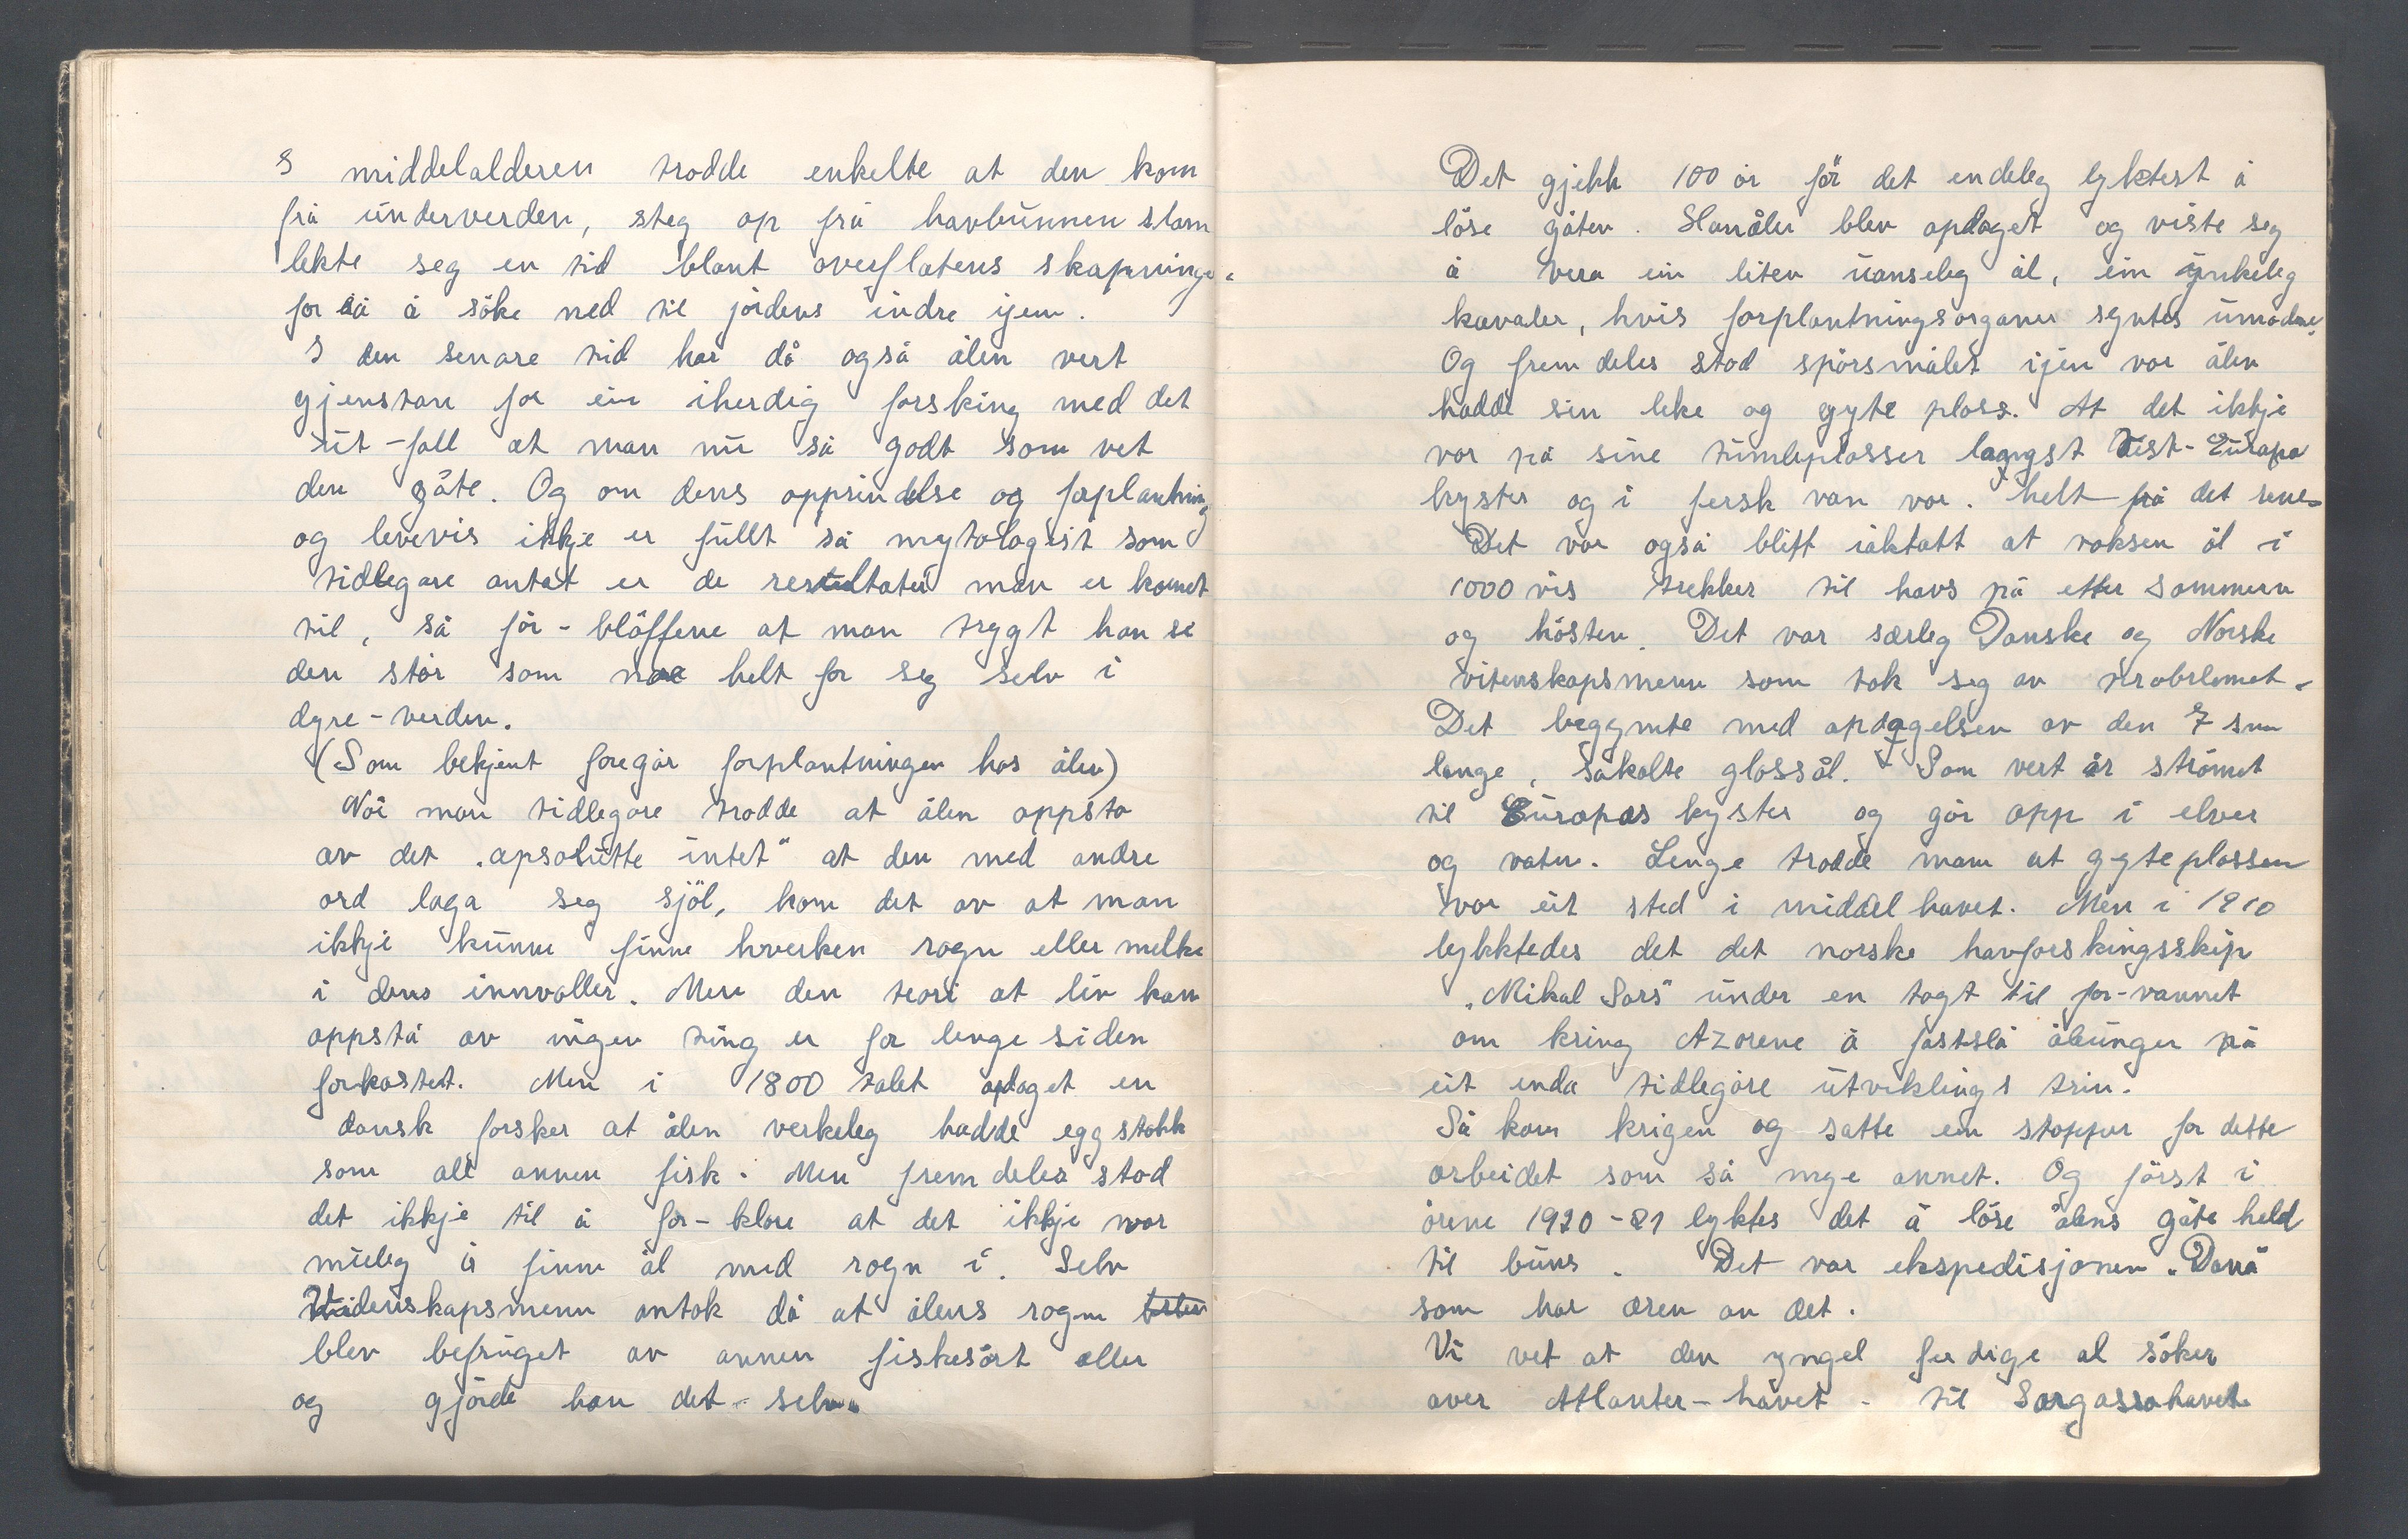 I middelalderen trodde enkelte at den kom
frå underverden, steg op frå havbunnen slam
lekte seg en tid blant overflatens skapninge.
for så å söke ned til jordens indre ijen.
I den senare tid har då også ålen vert
gjenstan for ein iherdig forsking med det
ut-fall at man nu så godt som vet
den gåte. Og om dens opprindelse og forplantning
og levevis ikkje er fullt så mytologist som
tidlegare antat er de resultater man er komet
til, så for-blöffene at man trygt kan se
den står som noe helt for seg selv i
dyre-verden.
(Som bekjent foregår forplantningen hos ålen)
Når man tidlegare trodde at ålen oppsto
av det "apsolutte intet" at den med andre
ord laga seg sjöl, kom det av at man
ikkje kunne finne hverken rogn eller melke
i dens innvoller. Men den teori at liv kan
oppstå av ingen ting er for lenge siden
forkastet. Men i 1800 talet opdaget en
dansk forsker at ålen verkeleg hadde eggstokk
som all annen fisk. Men fremdeles stod
det ikkje til å for-klare at det ikkje var
muleg å finne ål med rogn i. Selv
Videnskapsmenn antok då at ålens rogn
blev befruget av annen fiskesort eller
og gjörde han det selv.
Det gjekk 100 år för det endeleg lyktest å
löse gåten. Hanålen blev opdaget og viste seg
å vera ein liten uanseleg ål, ein ynkeleg
kavaler, hvis forplantningsorganer syntes umodene.
Og fremdeles stod spörsmålet ijen vor ålen
hadde sin leke og gyte plass. At det ikkje
var på sine tumleplasser langst Vest-Europa
kyster og i fersk van var. helt på det rene.
Det var også blitt iaktatt at voksen ål i
1000 vis trekker til havs på etter sommern
og hösten. Det var særleg Danske og Norske
vitenskapsmenn som tok seg av problemet.
Det begynte med opdagelsen av den 7 sm
lange, såkalte glassål. Som vert år strömet
til Europas kyster og går opp i elver
og vatn. Lenge trodde man at gyteplassen
var eit sted i middelhavet. Men i 1910
lykktedes det det norske havforskingsskip
"Mikal Sars" under en togt til for-vannet
om kring Azorene å fastslå ålunger på
eit enda tidlegare utviklings trin.
Så kom krigen og satte ein stopper for dette
arbeidet som så mye annet. Og först i
årene 1920-21 lyktes det å löse ålens gåte held
til buns. Det var ekspedisjonen "Dana"
som har æren av det.
Vi vet at den yngel ferdige ål söker
over Atlanter-havet - til Sargassohavet.